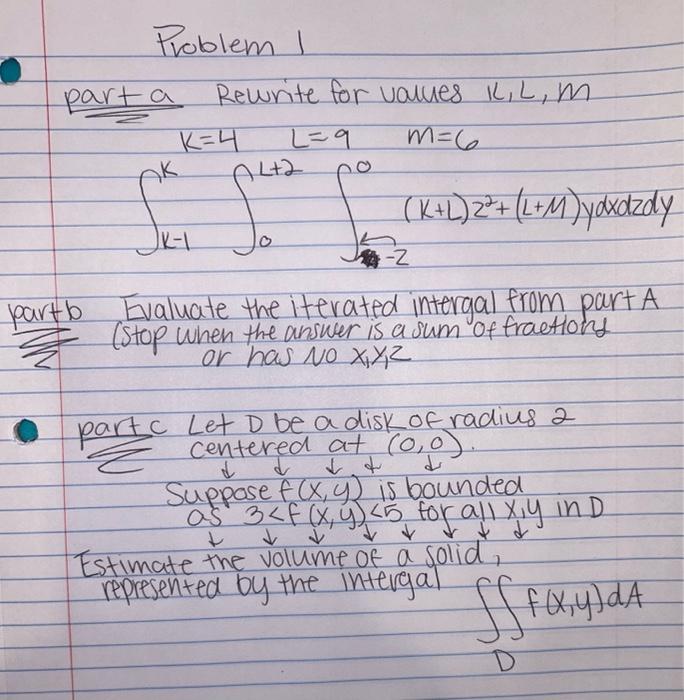 Problem 1
part a Rewrite for values K, L, M
K=4 L=9 M=6
∫_{K-1}^{K} ∫_{0}^{L+2} ∫_{-z}^{0} (K+L)z²+(L+M)ydxdzdy
part b Evaluate the iterated intergal from part A
(stop when the answer is a sum of fractions
or has NO X,Y,Z
part c Let D be a disk of radius 2
centered at (0,0).
↓ ↓ ↓ ↓ ↓
Suppose f(x,y) is bounded
as 3<f(x,y)<5 for all x,y in D
↓ ↓ ↓ ↓ ↓ ↓ ↓ ↓
Estimate the volume of a solid,
represented by the intergal
∬_D f(x,y)dA